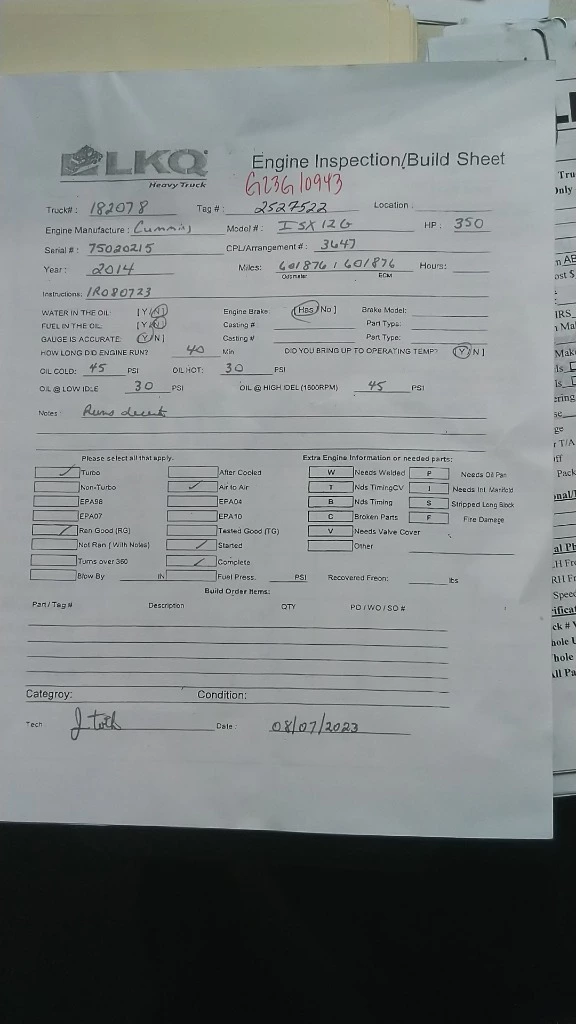 LKQ
Heavy Truck
Engine Inspection/Build Sheet
G23G10943
Truck#: 182078 Tag #: 2527522 Location:
Engine Manufacture: Cummins Model #: ISX12G HP: 350
Serial #: 75020215 CPL/Arrangement #: 3647
Year: 2014 Miles: 601876 / 601876 Hours:
Odometer ECM
Instructions: IR080723
WATER IN THE OIL [Y/N] Engine Brake [Has/No] Brake Model:
FUEL IN THE OIL [Y/N] Casting # Part Type:
GAUGE IS ACCURATE [Y/N] Casting # Part Type:
HOW LONG DID ENGINE RUN? 40 Min DID YOU BRING UP TO OPERATING TEMP? [Y/N]
OIL COLD: 45 PSI OIL HOT: 30 PSI
OIL @ LOW IDLE 30 PSI OIL @ HIGH IDEL (1500RPM) 45 PSI
Notes: Runs decent
Please select all that apply. Extra Engine Information or needed parts:
Turbo After Cooled W Needs Welded P Needs Oil Pan
Non-Turbo Air to Air T Nds TimingCV I Needs Int. Manifold
EPA98 EPA04 B Nds Timing S Stripped Long Block
EPA07 EPA10 C Broken Parts F Fire Damage
Ran Good (RG) Tested Good (TG) V Needs Valve Cover
Not Ran (With Notes) Started Other
Turns over 360 Complete
Blow By IN Fuel Press. PSI Recovered Freon: lbs
Build Order Items:
Part / Tag # Description QTY PO / WO / SO #
Categroy: Condition:
Tech J toth Date: 08/07/2023